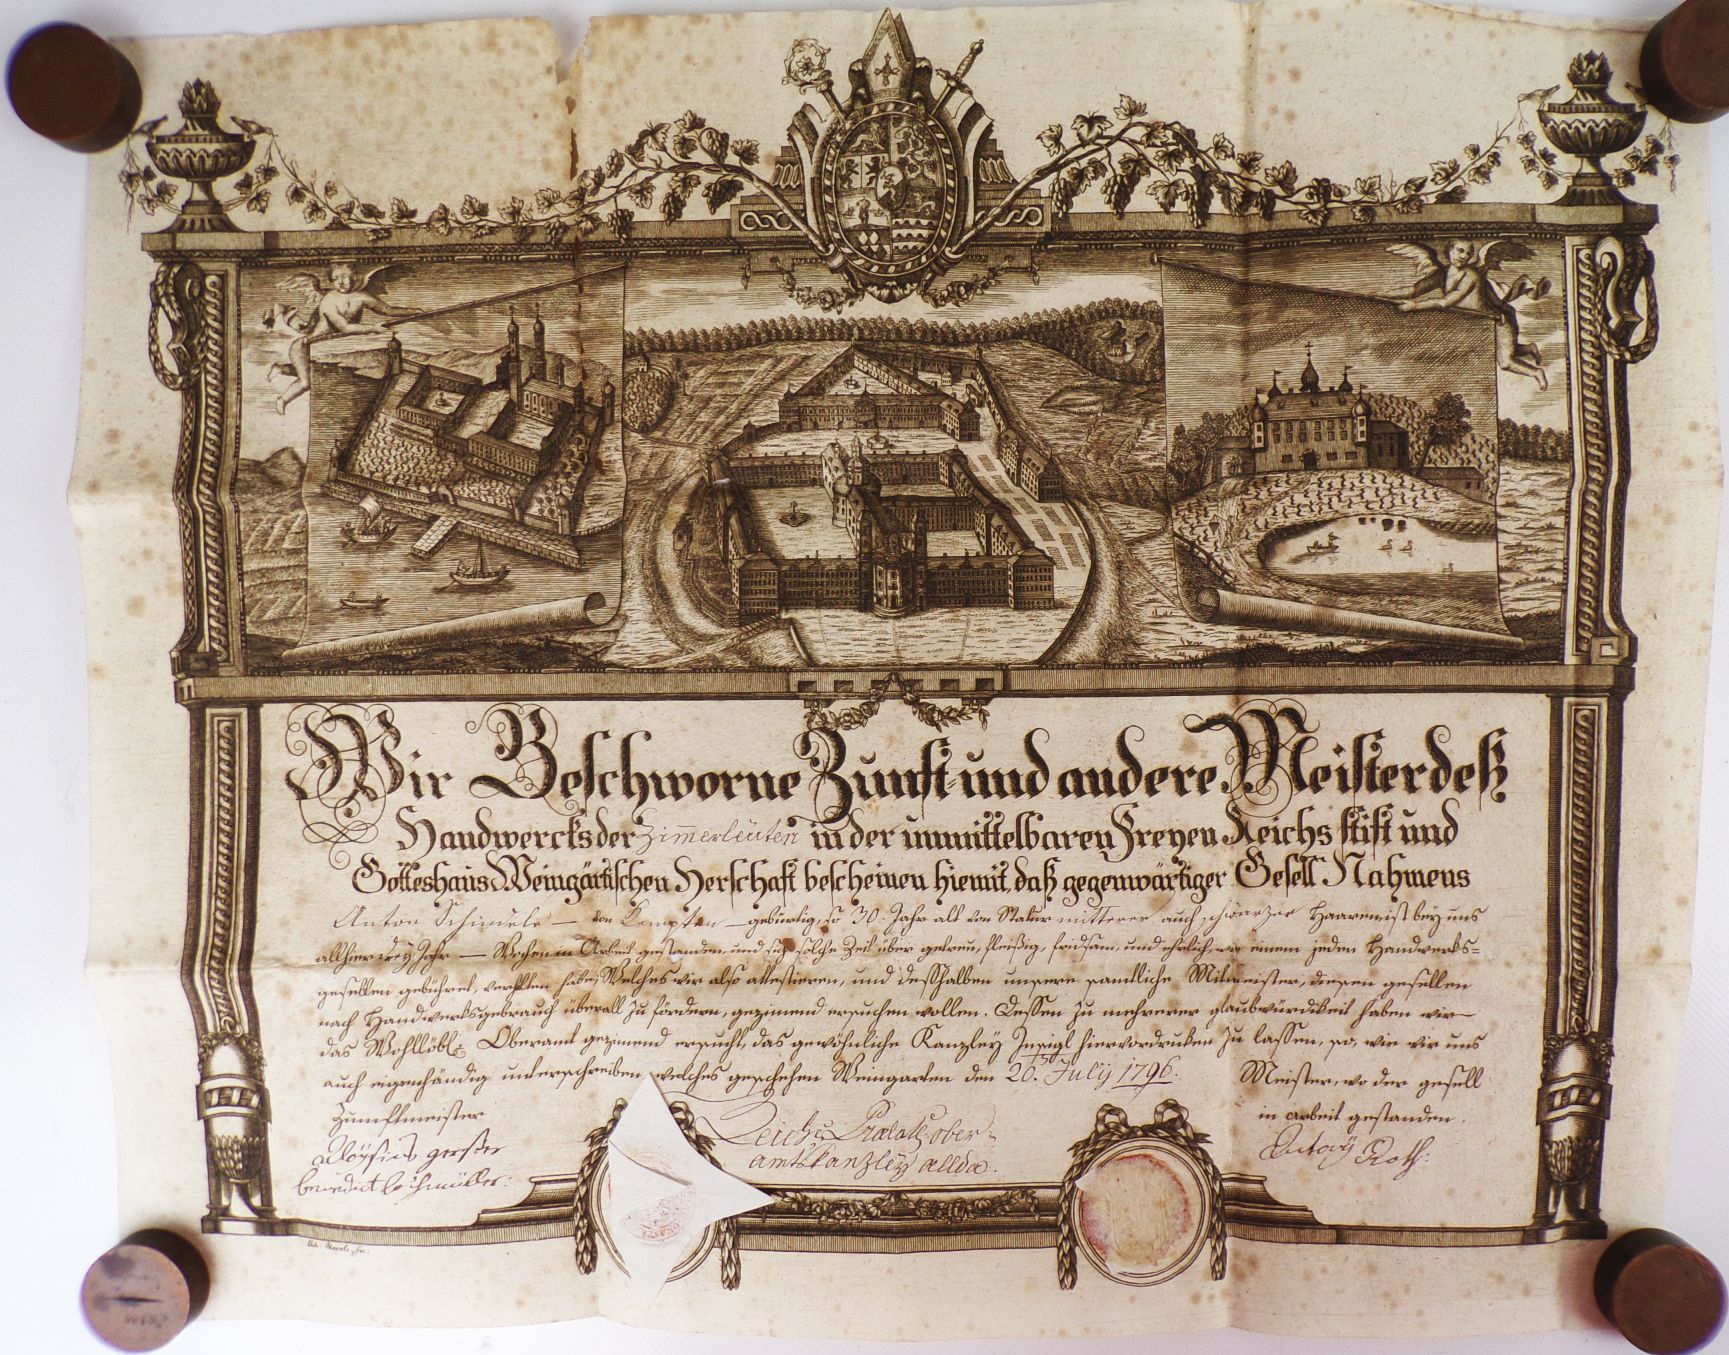 Wir Beschworne Zunft und andere Meister deß
Handwercks der Zimerleüten in der unmittelbaren Freyen Reichs stift und
Gotteshaus Weingärtischen Herschaft bescheinen hiemit, daß gegenwärtiger Gesell Nahmens
Anton von Kempten gebürtig, so 30. Jahr alt von Statur mitterer auch schwarzer Haaren ist bey uns
allhier drey Jahr Wochen in Arbeit gestanden, und sich solche Zeit über getreu, fleißig, fridsam, und ehrlich, wie einem jeden Handwerks=
gesellen gebühret, verhalten habe, Welches wir also attestieren, und deßhalben unsere samtliche Mitmeister, diesen gesellen
nach Handwerksgebrauch überall zu fördern, gezimend ersuchen wollen. Dessen zu mehrerer glaubwürdikeit haben wir
das Wohllöbl: Oberamt gezimend ersucht, das gewöhnliche Kanzley Insigl hiervordruken zu lassen, so, wie wir uns
auch eigenhändig unterschreiben, welches geschehen Weingarten den 26. July 1796.
Zunftmeister
Aloysius
benedict
Reichs Prælat: ober=
amtskanzley allda.
Meister, wo der gesell
in arbeit gestanden
Roth: